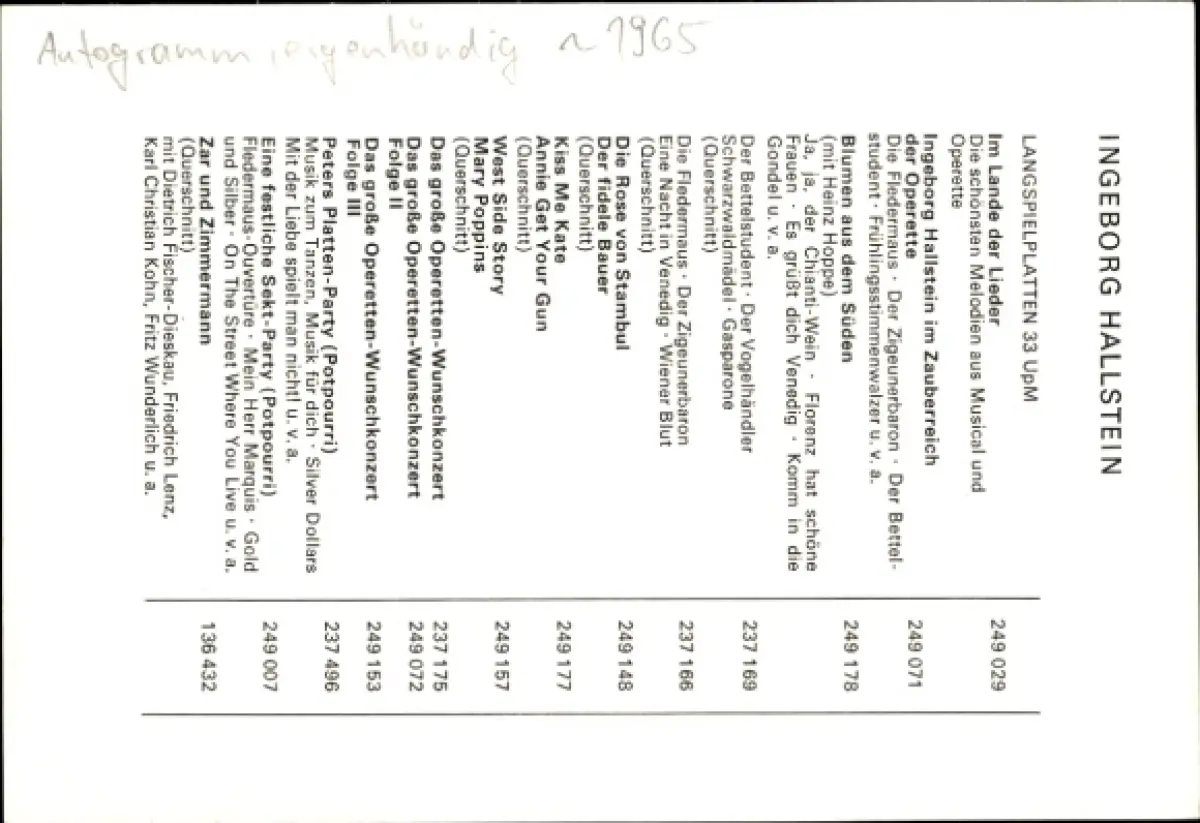 Autogramm, eigenhändig ~ 1965
INGEBORG HALLSTEIN
LANGSPIELPLATTEN 33 UpM
Im Lande der Lieder 249 029
Die schönsten Melodien aus Musical und
Operette
Ingeborg Hallstein im Zauberreich
der Operette 249 071
Die Fledermaus · Der Zigeunerbaron · Der Bettel-
student · Frühlingsstimmenwalzer u. v. a.
Blumen aus dem Süden 249 178
(mit Heinz Hoppe)
Ja, ja, der Chianti-Wein · Florenz hat schöne
Frauen · Es grüßt dich Venedig · Komm in die
Gondel u. v. a.
Der Bettelstudent · Der Vogelhändler 237 169
Schwarzwaldmädel · Gasparone
(Querschnitt)
Die Fledermaus · Der Zigeunerbaron 237 166
Eine Nacht in Venedig · Wiener Blut
(Querschnitt)
Die Rose von Stambul 249 148
Der fidele Bauer
(Querschnitt)
Kiss Me Kate 249 177
Annie Get Your Gun
(Querschnitt)
West Side Story 249 157
Mary Poppins
(Querschnitt)
Das große Operetten-Wunschkonzert 237 175
Das große Operetten-Wunschkonzert 249 072
Folge II
Das große Operetten-Wunschkonzert 249 153
Folge III
Peters Platten-Party (Potpourri) 237 496
Musik zum Tanzen, Musik für dich · Silver Dollars
Mit der Liebe spielt man nicht! u. v. a.
Eine festliche Sekt-Party (Potpourri) 249 007
Fledermaus-Ouvertüre · Mein Herr Marquis · Gold
und Silber · On The Street Where You Live u. v. a.
Zar und Zimmermann 136 432
(Querschnitt)
mit Dietrich Fischer-Dieskau, Friedrich Lenz,
Karl Christian Kohn, Fritz Wunderlich u. a.